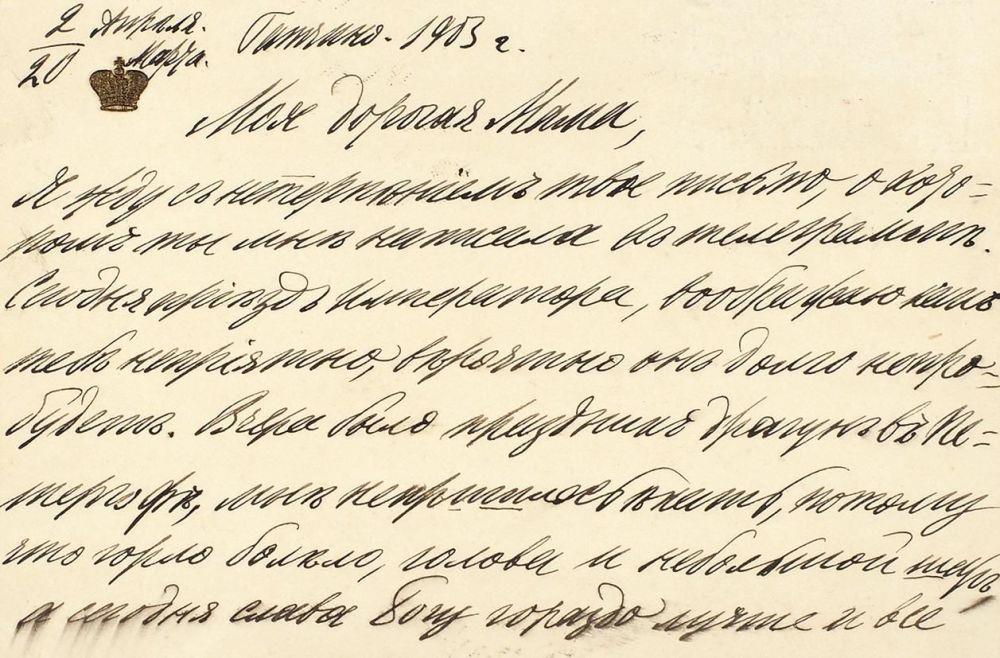 2 Апрѣля. Гатчино. 1903 г.
20 Марта.
Моя дорогая Мама,
Я жду съ нетерпѣніемъ твое письмо, о кото=
ромъ ты мнѣ написала въ телеграммѣ.
Сегодня пріѣздъ императора, воображаю какъ
тебѣ непріятно, вѣроятно онъ долго непро=
будетъ. Вчера было праздникъ драгунъ въ Пе=
тергофѣ, мнѣ непришлось ѣхать, потому
что горло болѣло, голова и небольшой жаръ,
а сегодня слава Богу гораздо лучше и все